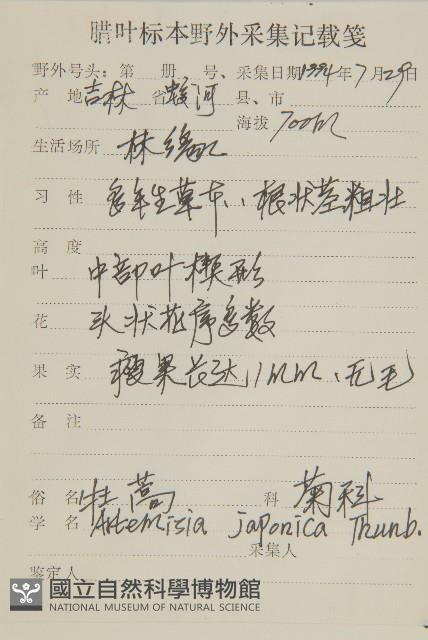 腊叶标本野外采集记载笺
野外号头：第 册 号、采集日期1994年7月29日
产 地 吉林 省 蛟河 县、市
海拔 700m
生活场所 林缘
习 性 多年生草本，根状茎粗壮
高 度
叶 中部叶楔形
花 头状花序多数
果 实 瘦果长达1mm、无毛
备 注
俗 名 牡蒿 科 菊科
学 名 Artemisia japonica Thunb.
采集人
鉴定人
國立自然科學博物館
NATIONAL MUSEUM OF NATURAL SCIENCE